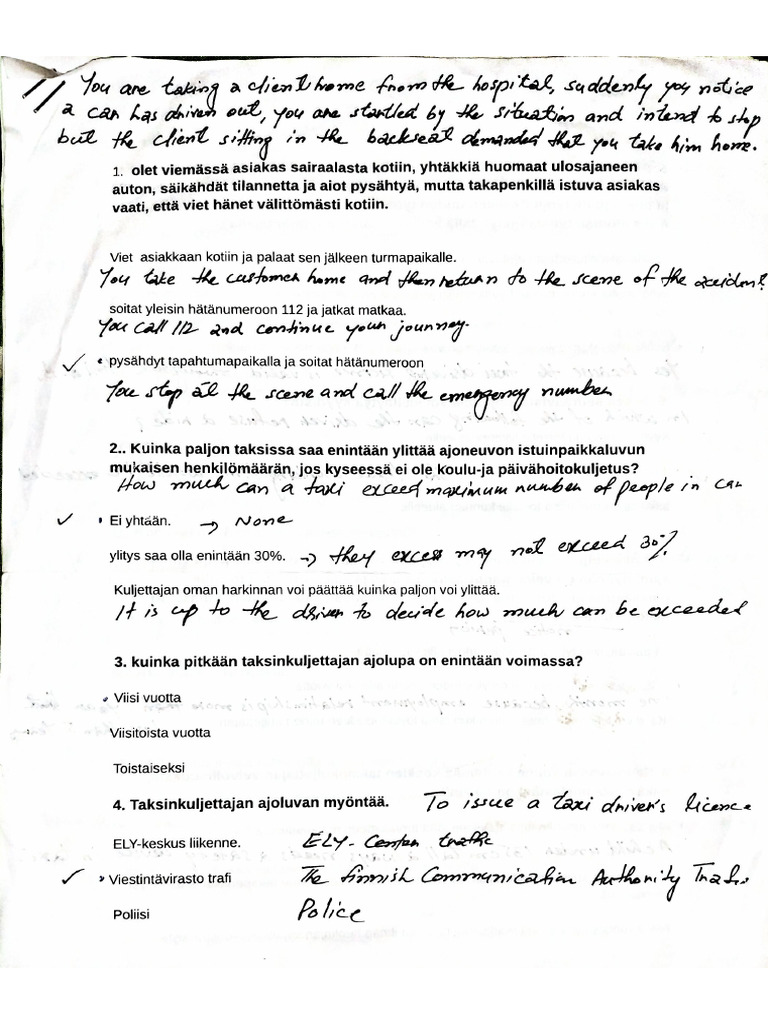 1) You are taking a client home from the hospital, suddenly you notice
a car has driven out, you are startled by the situation and intend to stop
but the client sitting in the backseat demanded that you take him home.
1. olet viemässä asiakas sairaalasta kotiin, yhtäkkiä huomaat ulosajaneen
auton, säikähdät tilannetta ja aiot pysähtyä, mutta takapenkillä istuva asiakas
vaati, että viet hänet välittömästi kotiin.
Viet asiakkaan kotiin ja palaat sen jälkeen turmapaikalle.
You take the customer home and then return to the scene of the accident.
soitat yleisin hätänumeroon 112 ja jatkat matkaa.
You call 112 and continue your journey.
✓ • pysähdyt tapahtumapaikalla ja soitat hätänumeroon
You stop at the scene and call the emergency number
2.. Kuinka paljon taksissa saa enintään ylittää ajoneuvon istuinpaikkaluvun
mukaisen henkilömäärän, jos kyseessä ei ole koulu-ja päivähoitokuljetus?
How much can a taxi exceed maximum number of people in car
✓ • Ei yhtään. → None
ylitys saa olla enintään 30%. → they excess may not exceed 30%
Kuljettajan oman harkinnan voi päättää kuinka paljon voi ylittää.
It is up to the driver to decide how much can be exceeded
3. kuinka pitkään taksinkuljettajan ajolupa on enintään voimassa?
• Viisi vuotta
Viisitoista vuotta
Toistaiseksi
4. Taksinkuljettajan ajoluvan myöntää. To issue a taxi driver's licence
ELY-keskus liikenne. ELY- Center traffic
✓ • Viestintävirasto trafi The finnish Communication Authority Trafi
Poliisi Police